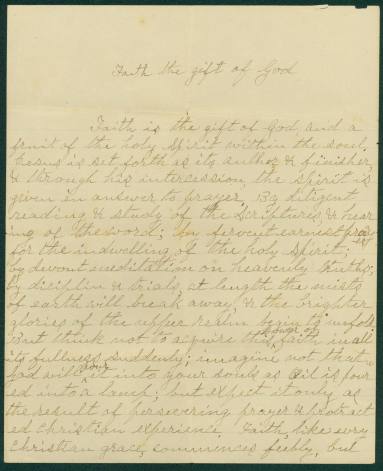 Faith the gift of God
Faith is the gift of God, and a
fruit of the holy spirit within the soul.
Jesus is set forth as its author & finisher,
& through his intercession, the spirit is
given in answer to prayer. By diligent
reading & study of the Scriptures, & hear
ing of the word; by fervent earnest pray
er
for the indwelling of the holy spirit;
by devout meditation on heavenly truths;
by diciplin & trials, at length the mists
of earth will break away, & the brighter
glories of the upper realm begin to unfold.
But think not to acquire this faith in all
its fullness suddenly; imagine not that
pour
God will it into your souls as oil is pour
ed into a lamp; but expect it only as
the result of persevering prayer & protract
ed christian experience. Faith, like every
christian grace, commences feebly, but